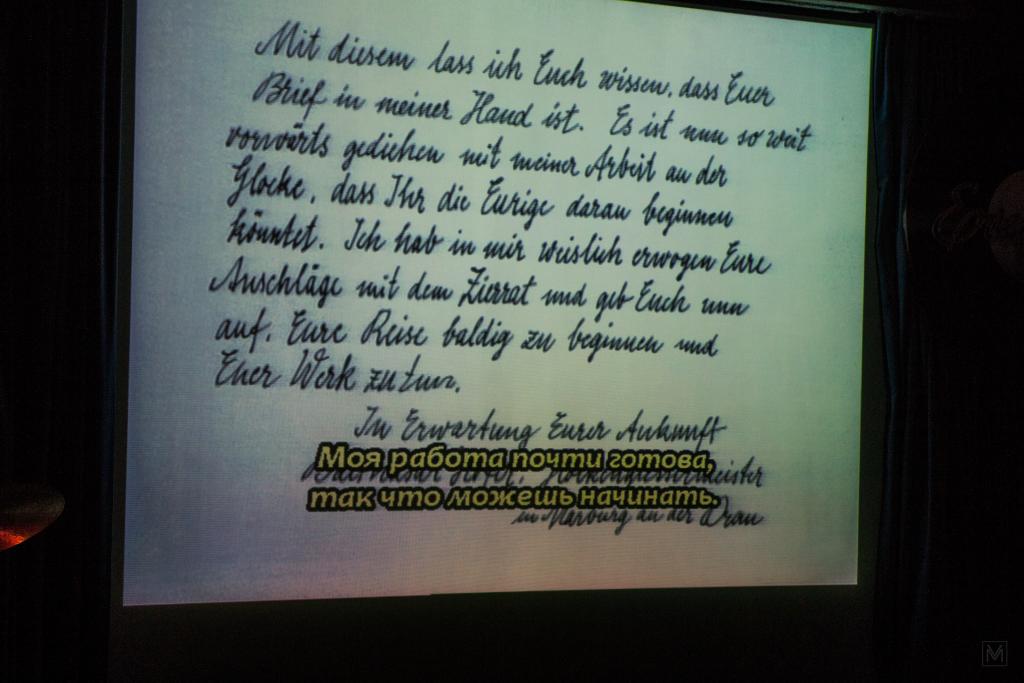 Mit diesem lass ich Euch wissen, dass Euer
Brief in meiner Hand ist. Es ist nun so weit
vorwärts gediehen mit meiner Arbeit an der
Glocke, dass Ihr die Eurige daran beginnen
könntet. Ich hab in mir weislich erwogen Eure
Anschläge mit dem Zierrat und geb Euch nun
auf, Eure Reise baldig zu beginnen und
Euer Werk zu tun.
In Erwartung Eurer Ankunft
Glockengiessermeister
in Marburg an der Drau
Моя работа почти готова,
так что можешь начинать.
M